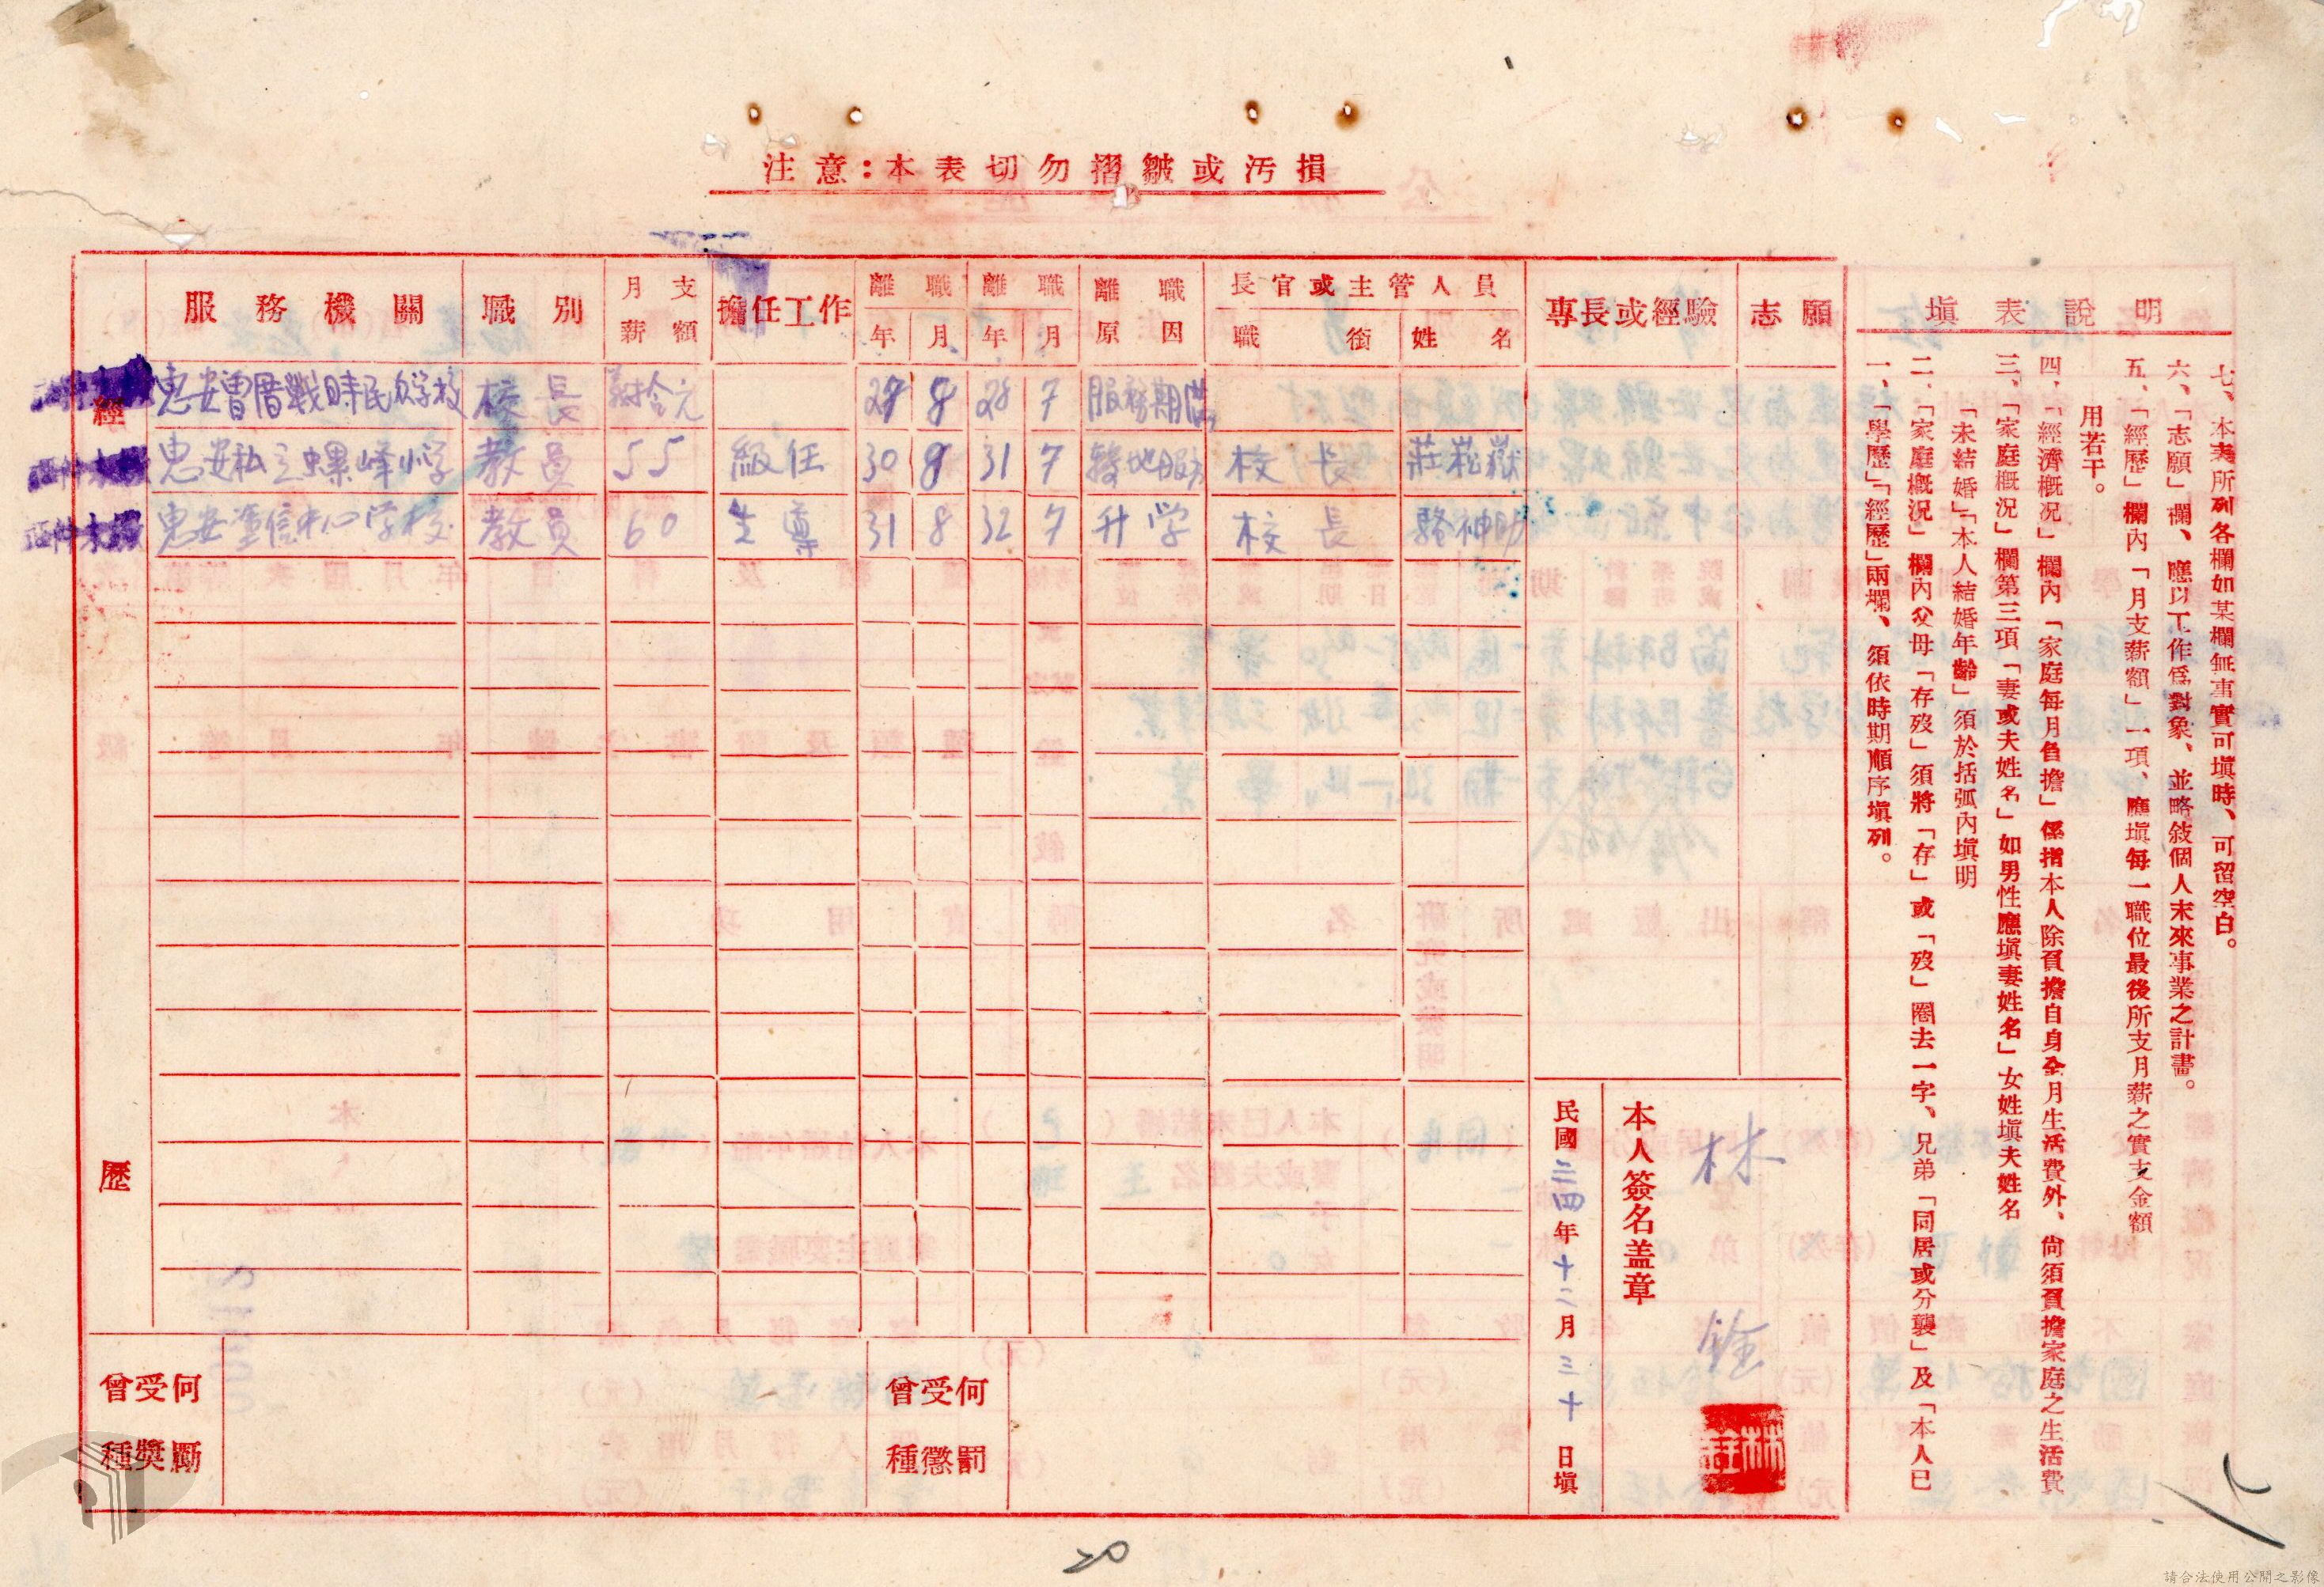 注意：本表切勿摺皺或汚損
服務機關 職別 月支薪額 擔任工作 離職年月 離職年月 離職原因 長官或主管人員 職銜 姓名 專長或經驗 志願
經歷
惠安曾厝戰時民众学校 校長 拾元 27 8 28 7 服務期滿
惠安私立螺峰小学 教員 55 級任 30 8 31 7 轉地服务 校長 莊崧嶽
惠安 信中心学校 教員 60 31 8 32 7 升学 校長 駱神助
曾受何種獎勵
曾受何種懲罰
民國三四年十二月三十日填
本人簽名盖章
林銓
填表說明
一、「學歷」「經歷」兩欄、須依時期順序填列。
二、「家庭概況」欄內父母「存歿」須將「存」或「歿」圈去一字、兄弟「同居或分襲」及「本人已
「未結婚」「本人結婚年齡」須於括弧內填明
三、「家庭概況」欄第三項「妻或夫姓名」如男性應填妻姓名」女姓填夫姓名
四、「經濟概况」欄內「家庭每月負擔」係指本人除負擔自身全月生活費外、尙須負擔家庭之生活費
用若干。
五、「經歷」欄內「月支薪額」一項、應填每一職位最後所支月薪之實支金額
六、「志願」欄、應以工作爲對象、並略敍個人未來事業之計畫。
七、本表所列各欄如某欄無事實可填時、可留空白。
20
請合法使用公開之影像